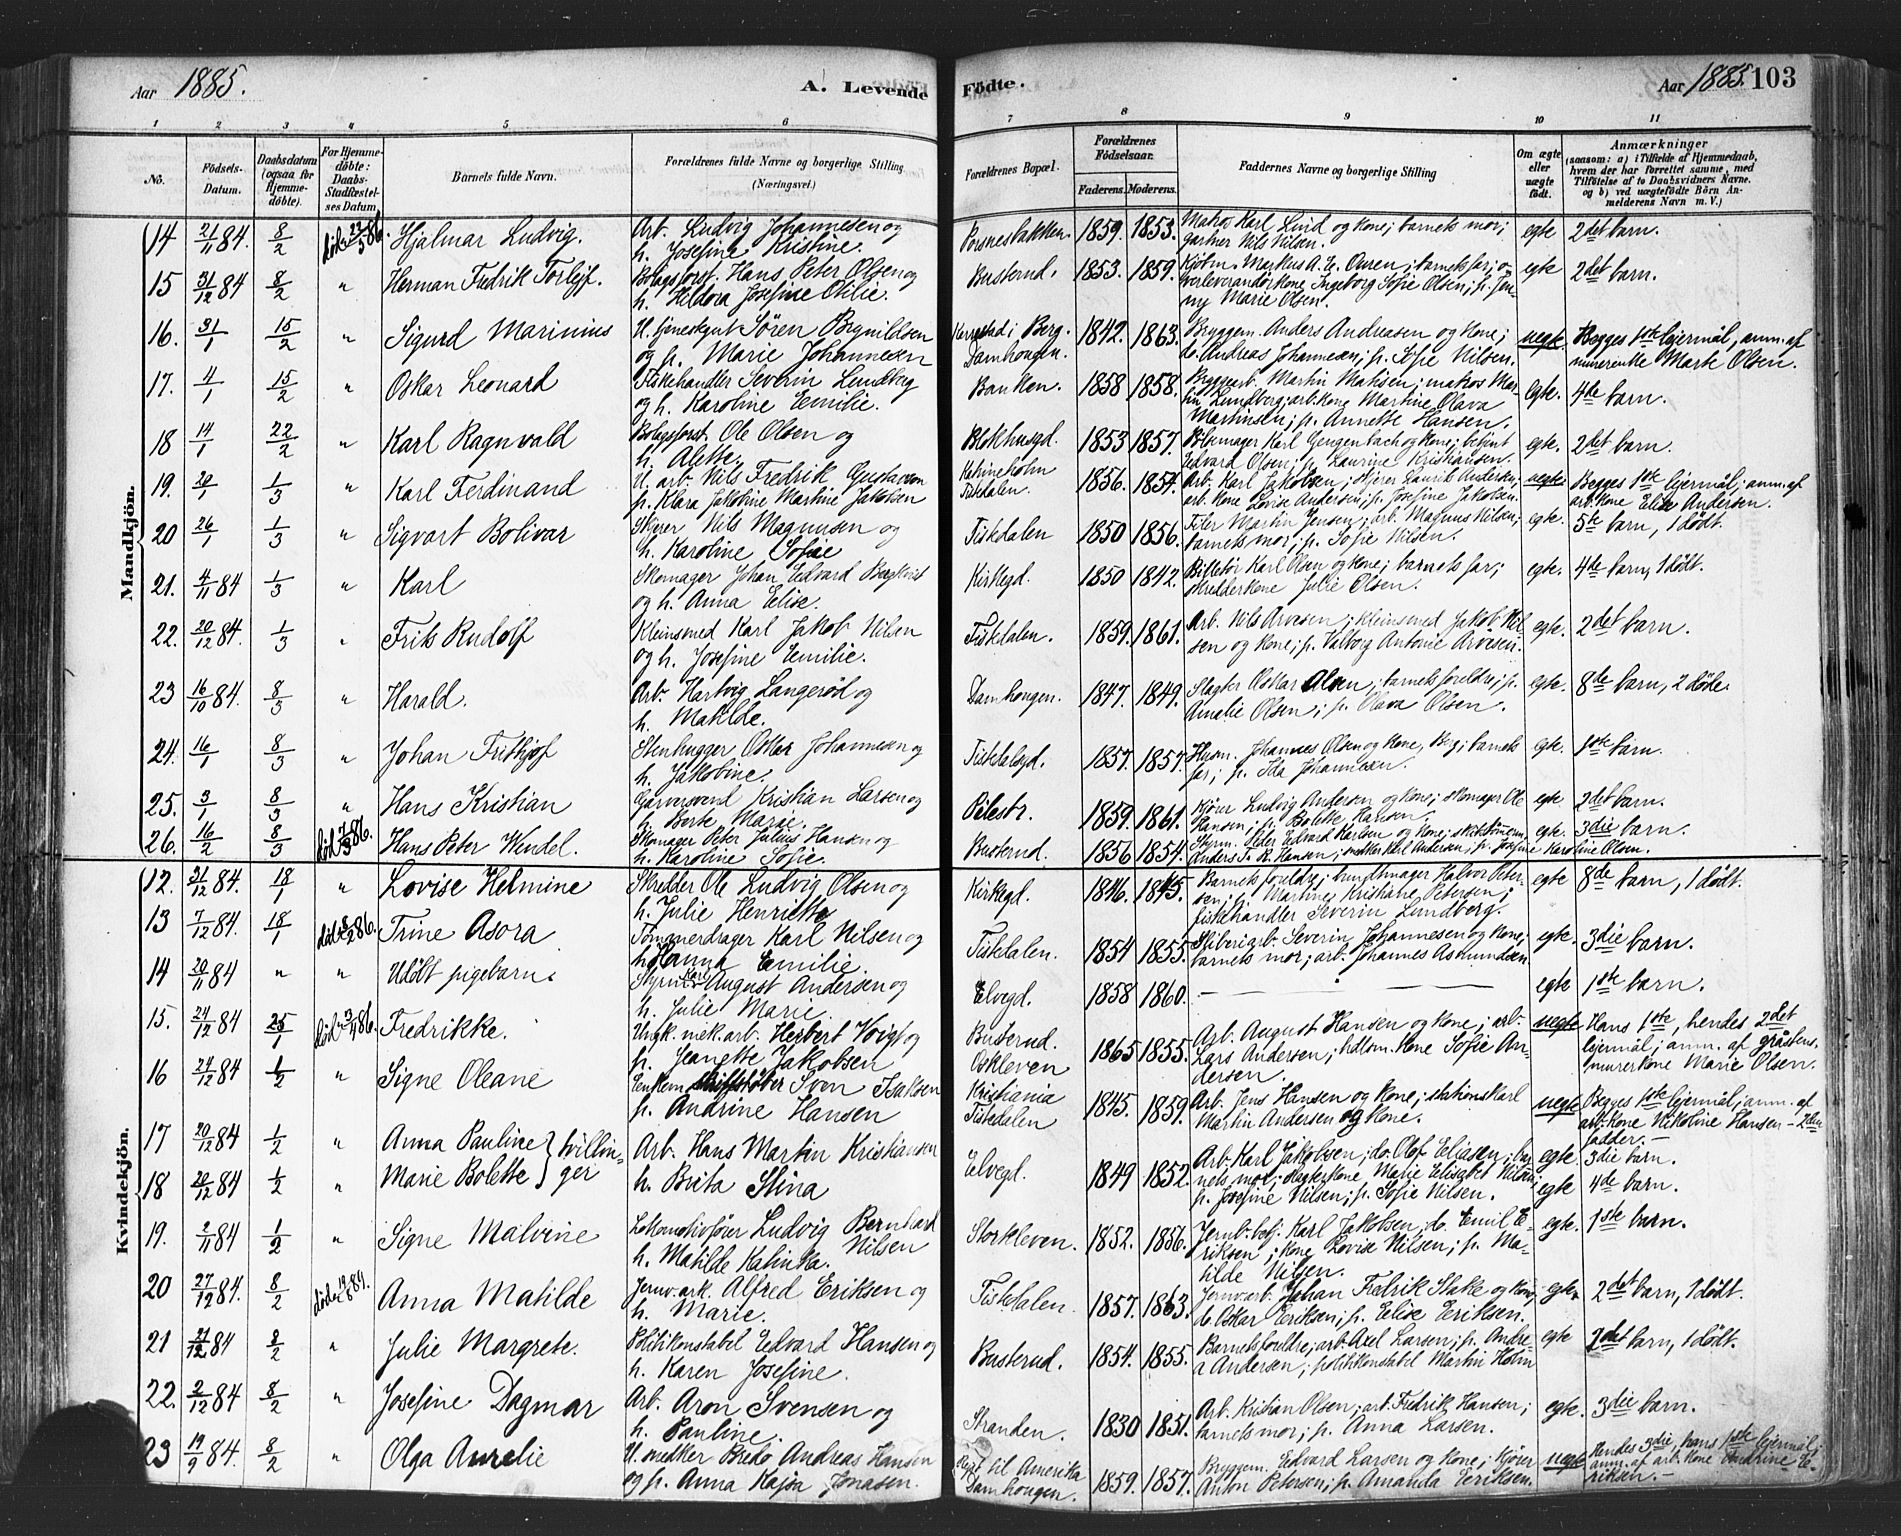 Aar 1885. A. Levende Födte. Aar 1885. 103
1 2 3 4 5 6 7 8 9 10 11
No. Födsels-Datum. Daabsdatum (ogsaa for Hjemme-döbte). For Hjemme-döbte: Daabs-Stadfæstelses Datum. Barnets fulde Navn. Forældrenes fulde Navne og borgerlige Stilling (Næringsvei.) Forældrenes Bopæl. Forældrenes Födselsaar. Faderens. Moderens. Faddernes Navne og borgerlige Stilling Om ægte eller uægte födt. Anmærkninger (saasom: a) i Tilfælde af Hjemmedaab, hvem der har forrettet samme, med Tilföielse af to Daabsvidners Navne. og b) ved uægtefödte Börn Anmelderens Navn m. V.)
Mandkjön.
14 21/11 84. 8/2 död 22/5 86. Hjalmar Ludvig. Arb. Ludvig Johannesen og h. Josefine Kristine. 1859. 1853. Matros Karl Lind og kone; barnets mor; gartner Nils Nilsen. egte 2det barn.
15 31/12 84 8/2 " Herman Fredrik Torleif. Bolagsforst. Hans Peter Olsen og h. Heldora Josefine Otilie. Busterud. 1853. 1859. Kjöbm. Markus A. E. Olsen; barnets far; Ingeborg Sofie Olsen; p. Jenny Marie Olsen. egte 2det barn.
16. 31/1 15/2 " Sigurd Marinius U. tjenestgut Sören Brynildsen og p. Marie Johannesen i Berg. Damhaugen. 1842. 1863. Bryggem. Anders Andreasen og kone; do. Andreas Johannesen; p. Sofie Nilsen. uegte. Begges 1ste leiermål, anm. af murerenke Marte Olsen.
17. 4/1 15/2 " Oskar Leonard Fiskehandler Severin Lundberg og h. Karoline Emilie. Banken. 1858 1858. Bryggearb. Martin Matisen; matros Martin Lundberg; arb. kone Martine Olava Martinsen; p. Annette Hansen. egte. 4de barn.
18 14/1 22/2 " Karl Ragnvald Bolagsforst. Ole Olsen og h. Alette. Blokhusgd. 1853 1857. Pölsemager Karl Gengenbach og kone; betjent Edvard Olsen; p. Laurine Kristiansen. egte. 2det barn.
19. 20/1 1/3 " Karl Ferdinand U. arb. Nils Fredrik Gustavson p. Klara Jakobine Martine Jakobsen Katrineholm Fiskdalen. 1856. 1854. Arb. Karl Jakobsen; skjærer Laurits Andersen; arb. kone Lovise Andersen; p. Josefine Jakobsen. uegte Begges 1ste leiermål; anm. af arb. kone Elise Andersen.
20 26/1 1/3 " Sigvart Bolivar Skjærer Nils Magnusen og h. Karoline Sofie Fiskdalen 1850 1856. Filer Martin Jensen; arb. Magnus Nilsen; barnets mor; p. Sofie Nilsen. egte. 5te barn, 1 dödt.
21. 4/11 84 1/3 " Karl Skomager Johan Edvard Bergkvist og h. Anna Elise. Kirkegd. 1850 1842. Billetör Karl Olsen og kone; barnets far; skredderkone Julie Olsen. egte. 4de barn, 1 dödt.
22. 20/12 84. 1/3 " Frits Rudolf Kleinsmed Karl Jakob Nilsen og h. Josefine Emilie. Fiskdalen. 1859. 1861. Arb. Nils Arvesen; kleinsmed Jakob Nilsen og kone; p. Valborg Antonie Arvesen. egte. 2det barn.
23 16/10 84. 8/3 " Harald. Arb. Hartvig Langeröd og h. Matilde. Damhaugen. 1847. 1849. Slagter Oskar Olsen; barnets foreldre; p. Amalie Olsen; p. Olava Olsen. egte. 8de barn, 2 döde.
24. 16/1 8/3 " Johan Fritjof Stenhugger Oskar Johannesen og h. Jakobine. Fiskdalsgd. 1857. 1857. Husm. Johannes Olsen og kone, Berg; barnets far; p. Ida Johannesen. egte. 1ste barn.
25. 3/1 8/3 " Hans Kristian Garversvend Kristian Larsen og h. Berte Marie. Pilestr. 1859. 1861. Kjörer Ludvig Andersen og kone; skomager Ole Hansen; p. Bolette Hansen. egte. 2det barn.
26. 16/2 8/3 död 7/3 86. Hans Peter Wendel. Skomager Peter Julius Hansen og h. Karoline Sofie. Busterud. 1856 1854. Styrm. Peder Edvard Karlsen og kone; skibstömerm. Anders P. R. Hansen; snedker Karl Andersen; p. Josefine Karoline Olsen. egte. 3die barn.
Kvindekjön.
12. 31/12 84. 18/1 " Lovise Helmine Skredder Ole Ludvig Olsen og h. Julie Henriette Kirkegd. 1846. 1845. Barnets foreldre; bundtmager Halvor Petersen; p. Martine Kristiane Petersen; fiskehandler Severin Lundberg. egte 8de barn, 1 dödt.
13 7/12 84. 18/1 död 8/2 86. Trine Asora Tömmerdrager Karl Nilsen og h. Hanna Emilie. Fiskdalen. 1854 1855. Sliberiarb. Severin Johannesen og kone; barnets mor; arb. Johannes Asmundsen egte. 3die barn.
14 20/11 84 " " Udöbt pigebarn. Styrm. Karl August Andersen og h. Julie Marie. Elvegd. 1858 1860. — — — egte 1ste barn.
15. 24/12 84 25/1 död 3/4 86. Fredrikke. Ungk. mek. arb. Herbert Voigt og p. Jeanette Jakobsen Busterud. Oskleven 1865 1855. Arb. August Hansen og kone; arb. Lars Andersen; hdlsm. kone Sofie Andersen. uegte Hans 1ste, hendes 2det leiermål; anm. af gråstensmurerkone Marie Olsen.
16 24/12 84 1/2 " Signe Oleane Enkem. Sven Isaksen p. Andrine Hansen Kristiania Fiskdalen 1845. 1859. Arb. Jens Hansen og kone; stationskarl Martin Andersen og kone. uegte Begges 1ste leiermål; anm. af arb. kone Nikoline Hansen – 2den fadder. –
17 20/12 84 1/2 " Anna Pauline } tvillinger Arb. Hans Martin Kristiansen h. Brita Stina Elvegd. 1849 1852. Arb. Karl Jakobsen; do. Olof Eliasen; barnets mor; slagterkone Marie Elisabet Nilsen; p. Josefine Nilsen; p. Sofie Nilsen. egte. 3die barn.
18 20/12 84 1/2 " Marie Bolette egte 4de barn.
19. 2/11 84 1/2 " Signe Malvine Lokomotivförer Ludvig Bernhard Nilsen h. Matilde Katinka. Storkleven. 1852. 1856. Jernb. betj. Karl Jakobsen, do. Emil Eriksen; kone Lovise Nilsen; p. Matilde Nilsen. egte. 1ste barn.
20 27/12 84. 8/2 död 19/8 89. Anna Matilde Jernv. arb. Alfred Eriksen og h. Marie. Fiskdalen. 1857. 1863. Jernv. arb. Johan Fredrik Stake og kone; do. Oskar Eriksen; p. Elise Eriksen. egte. 2det barn, 1 dödt.
21 21/12 84 8/2 " Julie Margrete. Politikonstabel Edvard Hansen og h. Karen Josefine. Busterud. 1854. 1855. Barnets foreldre; arb. Axel Larsen; p. Andrea Andersen; politikonstabel Martin Holm egte 2det barn, 1 dödt.
22. 2/12 84 8/2 " Josefine Dagmar Arb. Aron Svensen og h. Pauline. Stranden. 1830 1851. Arb. Kristian Olsen; arb. Fredrik Hansen; barnets mor; p. Anna Larsen. egte. 3die barn.
23 19/9 84. 8/2 " Olga Aurelie U. snedker Bredo Andreas Hansen og p. Anna Kajsa Jonasen. Reist til Amerika Damhougen. 1859. 1857. Bryggem. Edvard Larsen og kone; kjörer Anton Petersen; p. Amanda Eriksen. uegte Hendes 3die, hans 1ste leiermål; anm. af arb. kone Andrine Eriksen. –